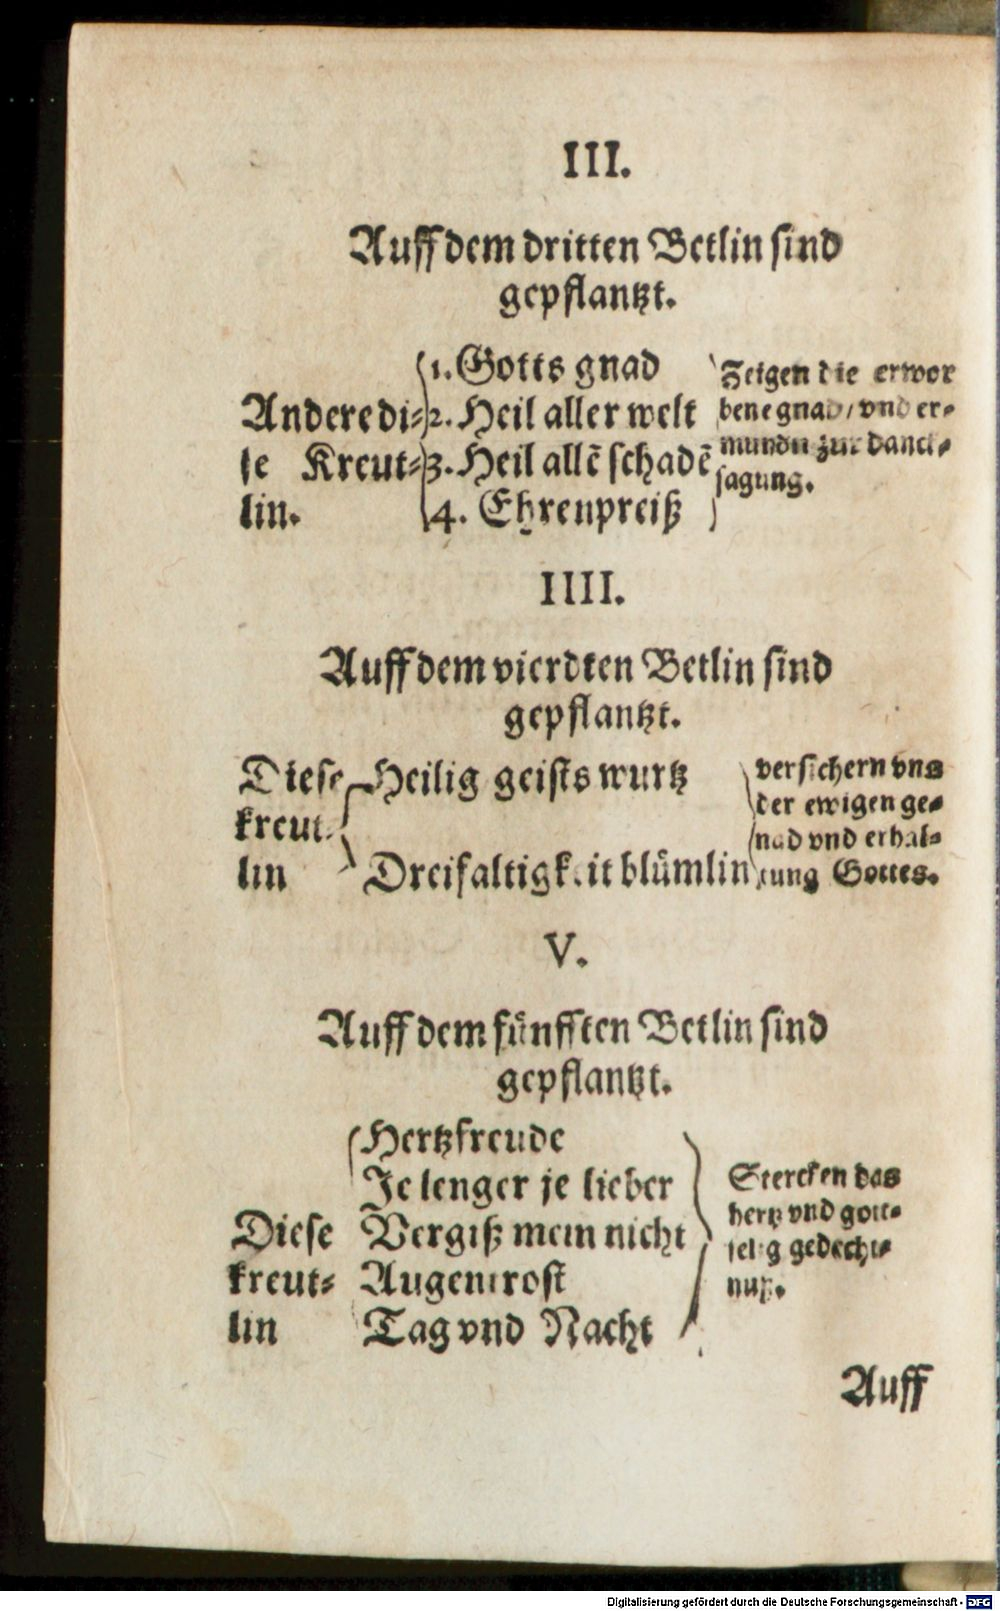 III.
Auff dem dritten Betlin sind
gepflantzt.
Andere di-
se Kreut-
lin.
1. Gotts gnad
2. Heil aller welt
3. Heil allẽ schadẽ
4. Ehrenpreiß
Zeigen die erwor
bene gnad / vnd er-
zur danck-
sagung.
IIII.
Auff dem vierdten Betlin sind
gepflantzt.
Diese
kreut-
lin
Heilig geists wurtz
Dreifaltigkeit blümlin
versichern vns
der ewigen ge-
nad vnd erhal-
tung Gottes.
V.
Auff dem fünfften Betlin sind
gepflantzt.
Diese
kreut-
lin
Hertzfreude
Je lenger je lieber
Vergiß mein nicht
Augentrost
Tag vnd Nacht
Stercken das
hertz vnd gott-
selig gedecht-
nuß.
Auff
Digitalisierung gefördert durch die Deutsche Forschungsgemeinschaft - DFG